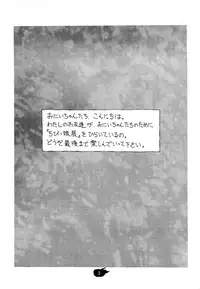 おにいちゃんたち、こんにちは。
わたしのお友達が、おにいちゃんたちのために
を ひらいているの。
どうぞ最後まで楽しんでいって下さい。